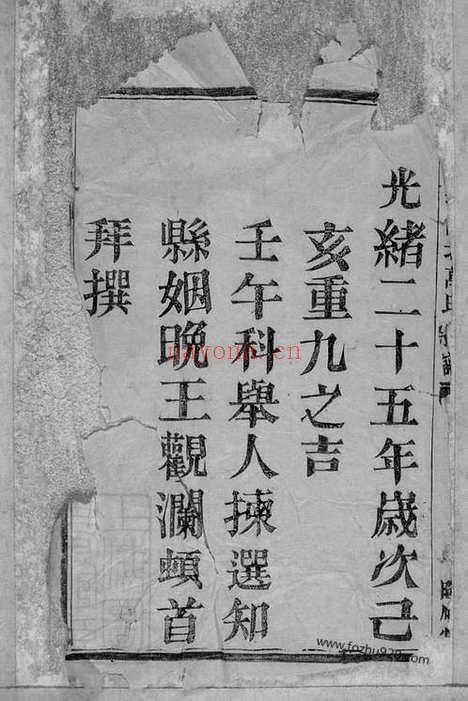 光緒二十五年歲次己
亥重九之吉
壬午科舉人揀選知
縣姻晚王觀瀾頓首
拜撰
nayona.cn
www.fozhu920.com